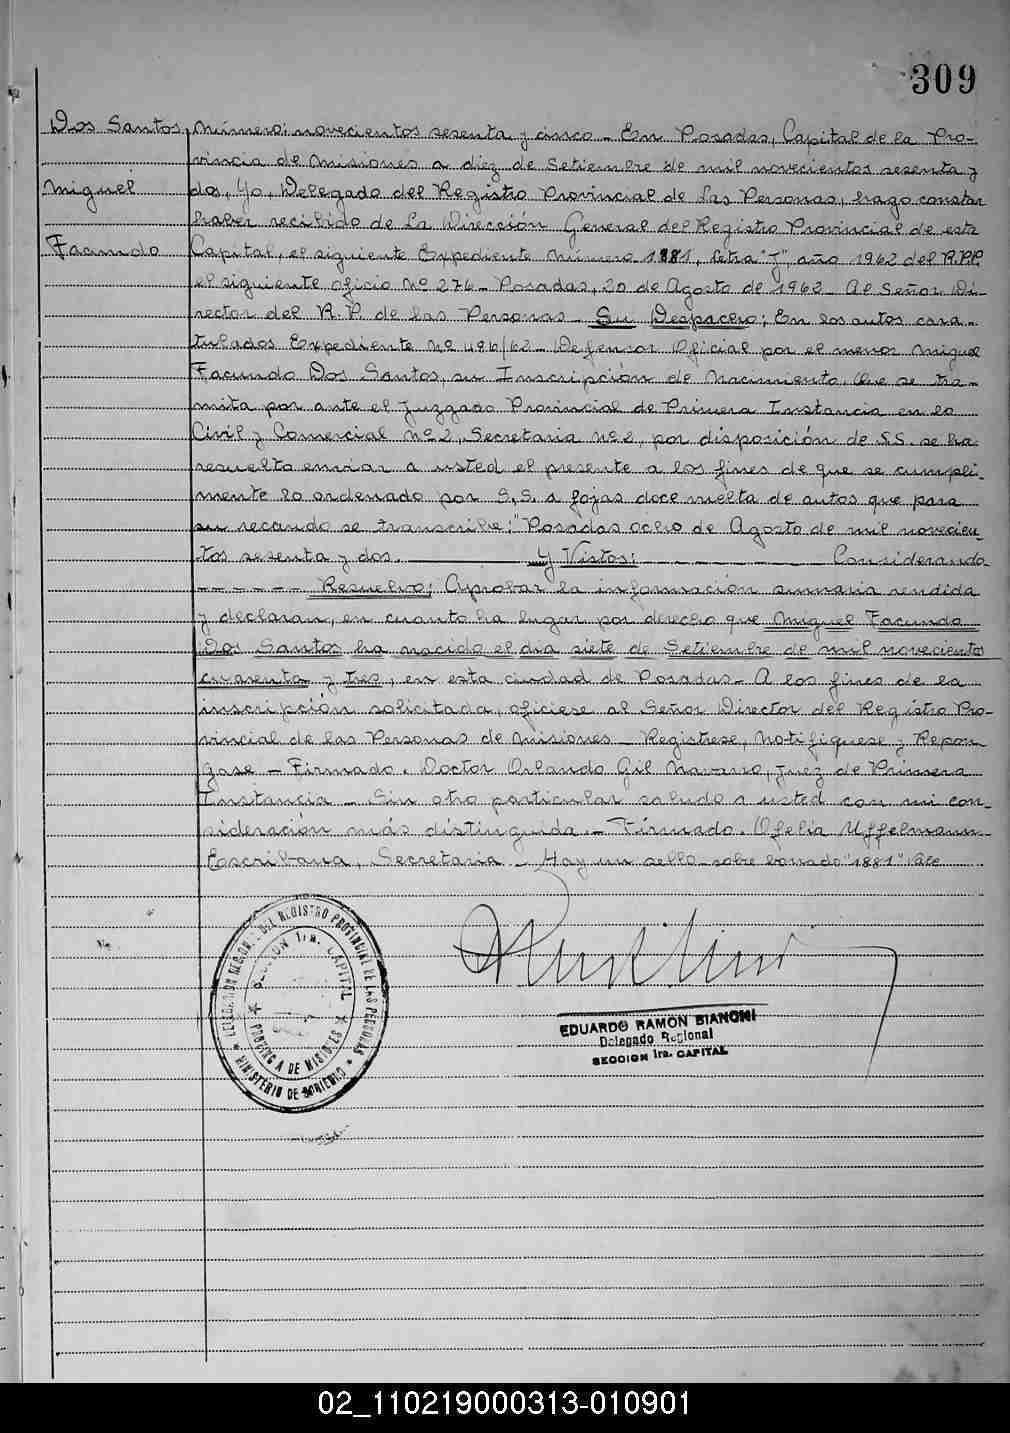 309
Dos Santos
Miguel
Facundo
Número: novecientos sesenta y cinco - En Posadas, Capital de la Pro-
vincia de Misiones a diez de Setiembre de mil novecientos sesenta y
dos, Yo, Delegado del Registro Provincial de las Personas, hago constar
haber recibido de la Dirección General del Registro Provincial de esta
Capital, el siguiente Expediente Número 1881, letra "J", año 1962 del R.P.P.
el siguiente oficio Nº 276 - Posadas, 20 de Agosto de 1962 - Al Señor Di-
rector del R. P. de las Personas - Su Despacho; En los autos cara-
tulados Expediente nº 496/62 - Defensor Oficial por el menor Miguel
Facundo Dos Santos, su Inscripción de Nacimiento. Que se tra-
mita por ante el Juzgado Provincial de Primera Instancia en lo
Civil y Comercial nº 2, Secretaria nº 2, por disposición de S.S. se ha
resuelto enviar a usted el presente a los fines de que se cumpli-
mente lo ordenado por S.S. a fojas doce vuelta de autos que para
su recaudo se transcribe: "Posadas ocho de Agosto de mil novecien-
tos sesenta y dos. Y Vistos: Considerando
- - - - - - Resuelvo: Aprobar la información sumaria rendida
y declaran, en cuanto ha lugar por derecho que Miguel Facundo
Dos Santos ha nacido el día siete de Setiembre de mil novecientos
cuarenta y tres, en esta ciudad de Posadas - A los fines de la
inscripción solicitada, ofíciese al Señor Director del Registro Pro-
vincial de las Personas de Misiones - Regístrese, Notifíquese y Repon
gase - Firmado. Doctor Orlando Gil Navarro, Juez de Primera
Instancia - Sin otro particular saludo a usted con mi con-
sideración más distinguida. - Firmado. Ofelia Uffelmann-
Escribana, Secretaria - Hay un sello - sobre borrado "1881" Vale
DELEGACION REGIONAL DEL REGISTRO PROVINCIAL DE LAS PERSONAS
SECCION 1ra. CAPITAL
PROVINCIA DE MISIONES
MINISTERIO DE GOBIERNO
EDUARDO RAMON BIANCHI
Delegado Regional
SECCION 1ra. CAPITAL
02_110219000313-010901